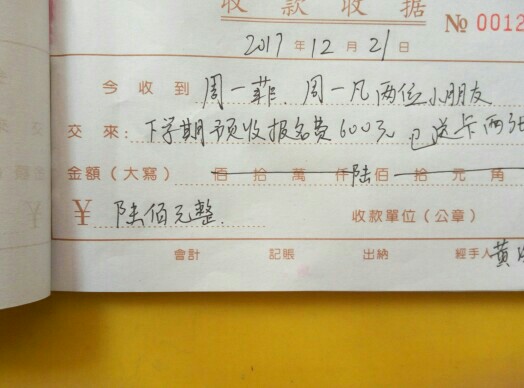 收款收据
№ 0012
2017年12月21日
今收到 周一菲、周一凡两位小朋友
交來：下学期预收报名费600元 已送卡两张
金額（大寫） 佰拾萬仟陆佰拾元角
¥ 陆佰元整. 收款單位（公章）
會計 記賬 出納 經手人 黄